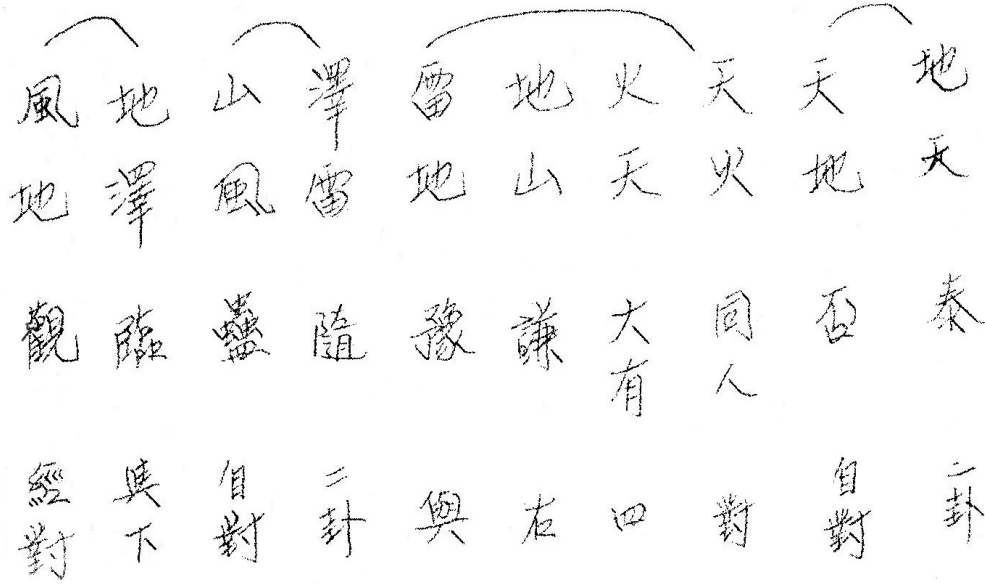 地天 泰 二卦
天地 否 自對
天火 同人 對
火天 大有 四
地山 謙 右
雷地 豫 與
澤雷 隨 二卦
山風 蠱 自對
地澤 臨 與下
風地 觀 經對